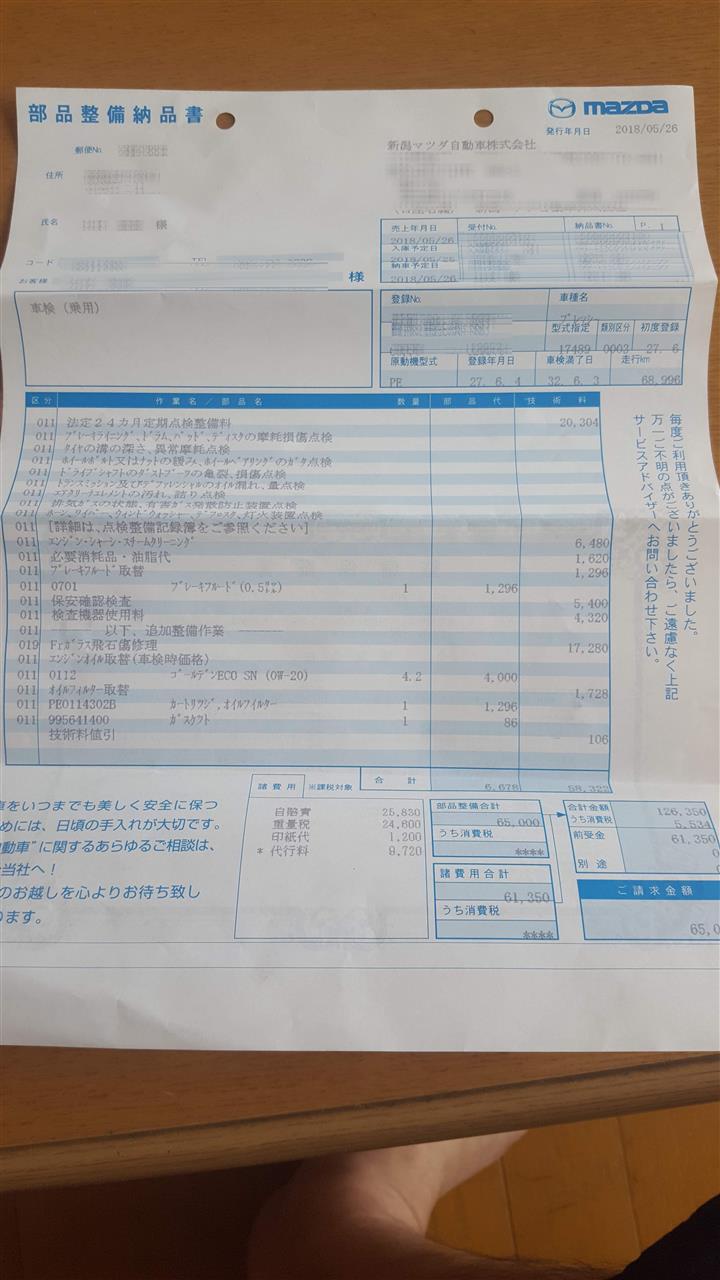 部品整備納品書
mazda
発行年月日 2018/05/26
郵便No.
新潟マツダ自動車株式会社
住所
氏名 様
コード TEL
お客様 様
売上年月日 受付No. 納品書No. P. 1
2018/05/26
入庫予定日
2018/05/25
納車予定日
2018/05/26
車検(乗用)
登録No. 車種名
型式指定 類別区分 初度登録
17489 0003 27. 6
原動機型式 登録年月日 車検満了日 走行km
PE 27. 6. 4 32. 6. 3 68,996
区分 作業名/部品名 数量 部品代 技術料
011 法定24カ月定期点検整備料 20,304
011 ブレーキライニング、ドラム、パッド、ディスクの摩耗損傷点検
011 タイヤの溝の深さ、異常摩耗点検
011 ホイールボルト又はナットの緩み、ホイールベアリングのガタ点検
011 ドライブシャフトのダストブーツの亀裂、損傷点検
011 トランスミッション及びデファレンシャルのオイル漏れ、量点検
011 エアクリーナエレメントの汚れ、詰り点検
011 排気ガスの状態、有害ガス発散防止装置点検
011 ホーン、ワイパー、ウインドウォッシャー、デフロスタ、灯火装置点検
011 [詳細は、点検整備記録簿をご参照ください]
011 エンジン・シャーシ・スチームクリーニング 6,480
011 必要消耗品・油脂代 1,620
011 ブレーキフルード取替 1,296
011 0701 ブレーキフルード(0.5㍑) 1 1,296
011 保安確認検査 5,400
011 検査機器使用料 4,320
011 ―――― 以下、追加整備作業 ――――
019 Frガラス飛石傷修理 17,280
011 エンジンオイル取替(車検時価格)
011 0112 ゴールデンECO SN (0W-20) 4.2 4,000
011 オイルフィルター取替 1,728
011 PE0114302B カートリツジ,オイルフィルター 1 1,296
011 995641400 ガスケツト 1 86
技術料値引 106
毎度ご利用頂きありがとうございました。
万一ご不明の点がございましたら、ご遠慮なく上記
サービスアドバイザーへお問い合わせ下さい。
合計 6,678 58,322
諸費用 ※課税対象
自賠責 25,830
重量税 24,600
印紙代 1,200
* 代行料 9,720
部品整備合計
65,000
うち消費税
****
諸費用合計
61,350
うち消費税
****
合計金額 126,350
うち消費税 5,534
前受金 61,350
0
別途 0
ご請求金額
65,0
車をいつまでも美しく安全に保つ
めには、日頃の手入れが大切です。
動車"に関するあらゆるご相談は、
当社へ!
のお越しを心よりお待ち致し
ります。